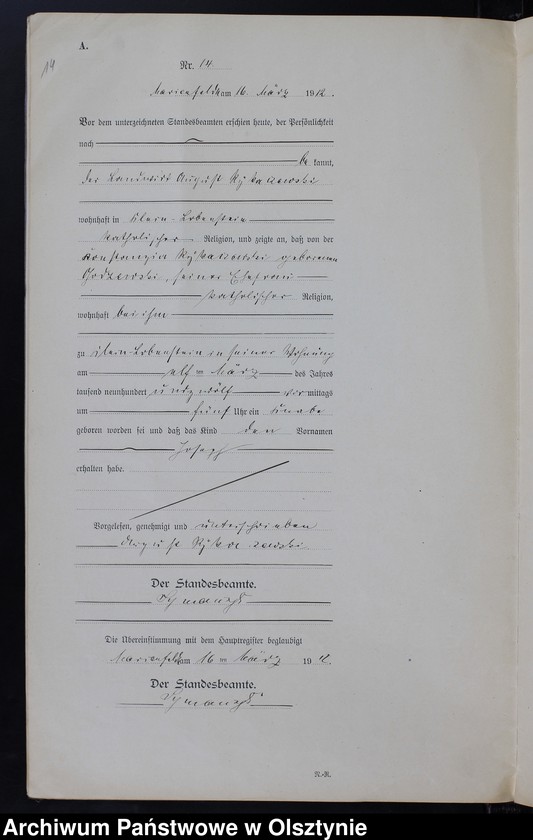 A.
14
Nr. 14.
Marienfelde am 16. März 1912.
Vor dem unterzeichneten Standesbeamten erschien heute, der Persönlichkeit
nach
be kannt,
der Landwirt August
wohnhaft in Klein-Lobenstein
katholischer Religion, und zeigte an, daß von der
geborenen
seiner Ehefrau
katholischer Religion,
wohnhaft bei ihm
zu Klein-Lobenstein in seiner Wohnung
am elf ten März des Jahres
tausend neunhundert und zwölf vor mittags
um fünf Uhr ein Knabe
geboren worden sei und daß das Kind den Vornamen
Joseph
erhalten habe.
Vorgelesen, genehmigt und unterschrieben
August
Der Standesbeamte.
Die Übereinstimmung mit dem Hauptregister beglaubigt
Marienfelde am 16 ten März 19 12.
Der Standesbeamte.
N.-R.
Archiwum Państwowe w Olsztynie